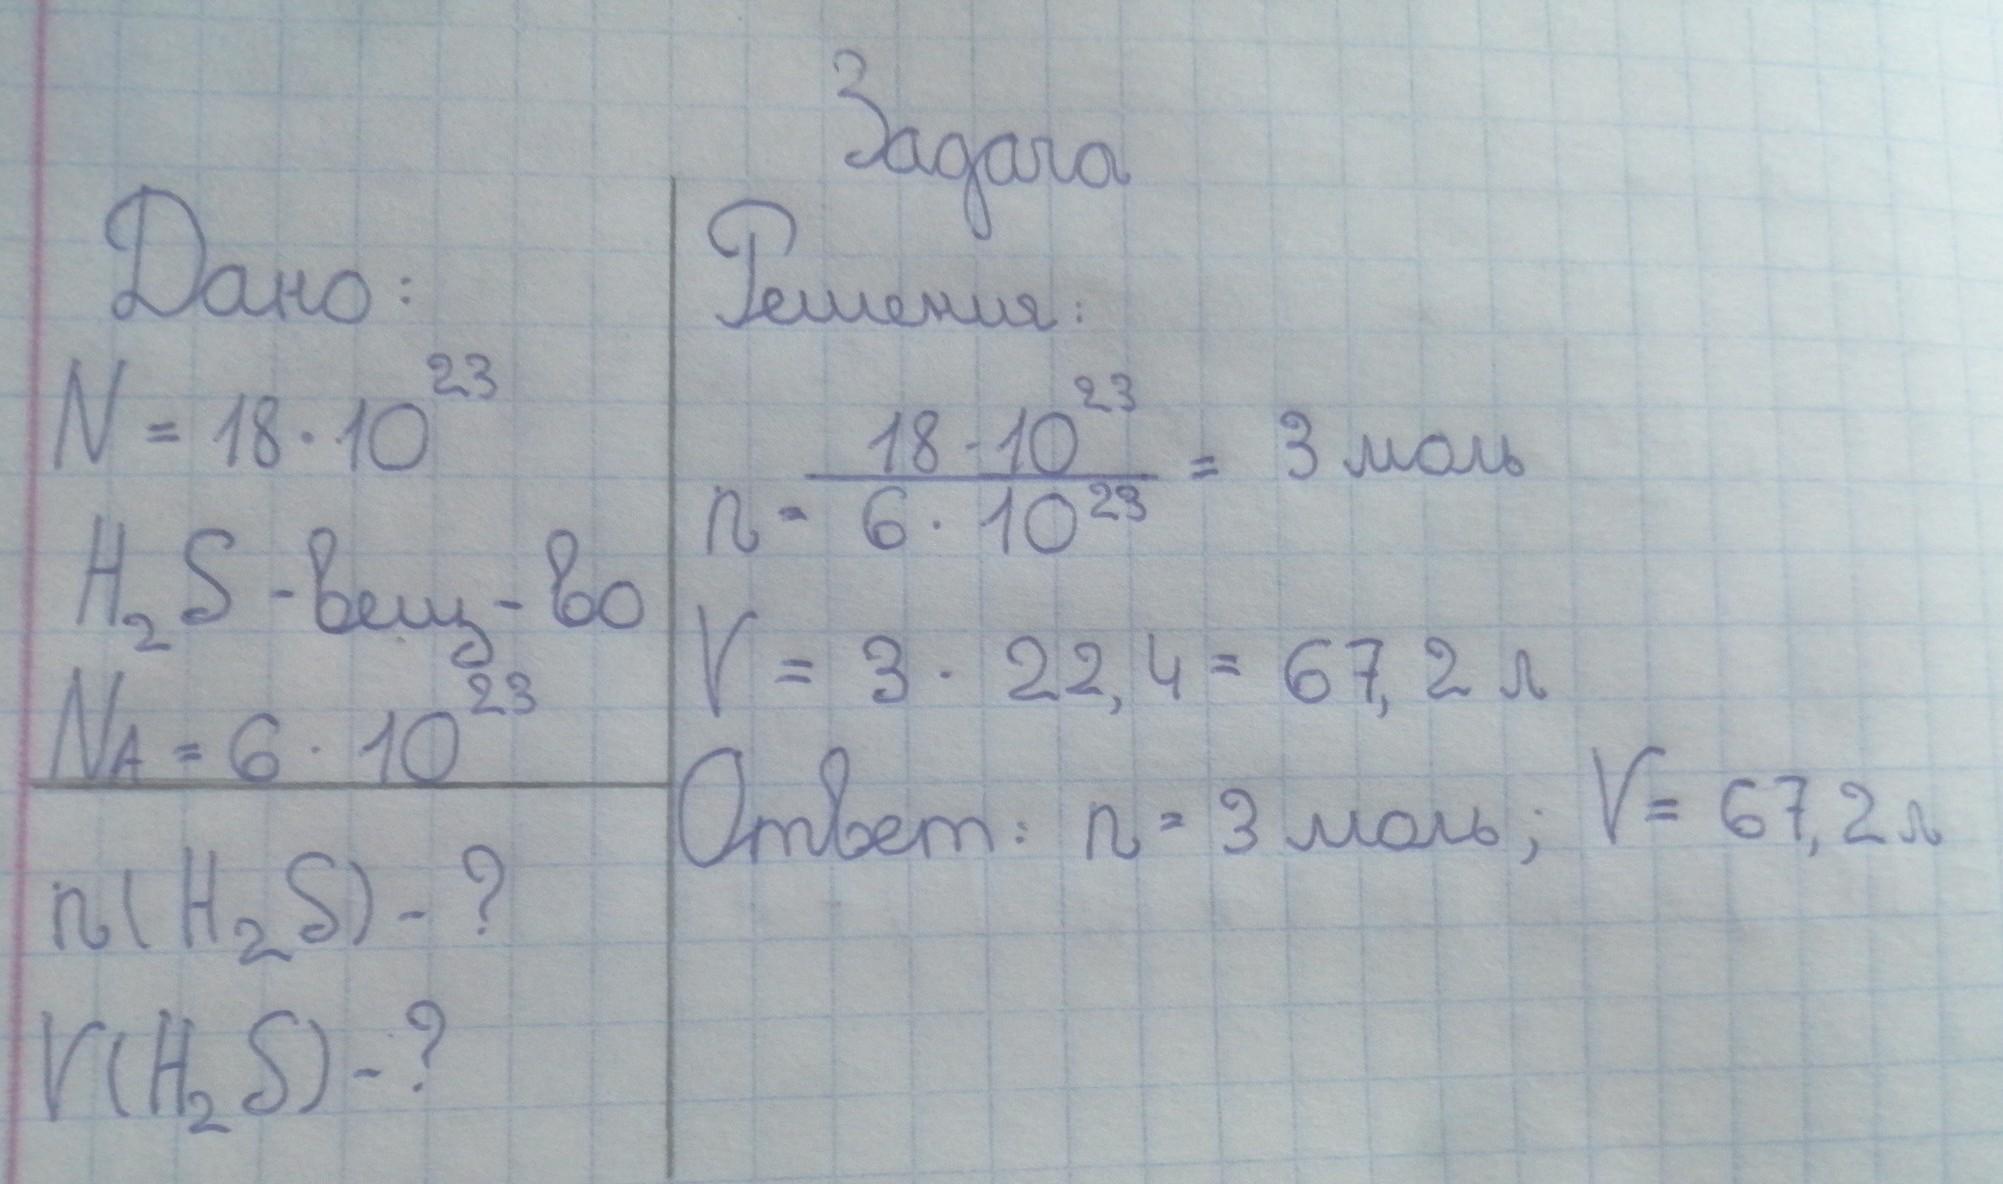 Задача
Дано:
N = 18 · 10²³
H₂S - вещ-во
NA = 6 · 10²³
n(H₂S) - ?
V(H₂S) - ?
Решения:
n = 18 · 10²³ / 6 · 10²³ = 3 моль
V = 3 · 22,4 = 67,2 л
Ответ: n = 3 моль; V = 67,2 л